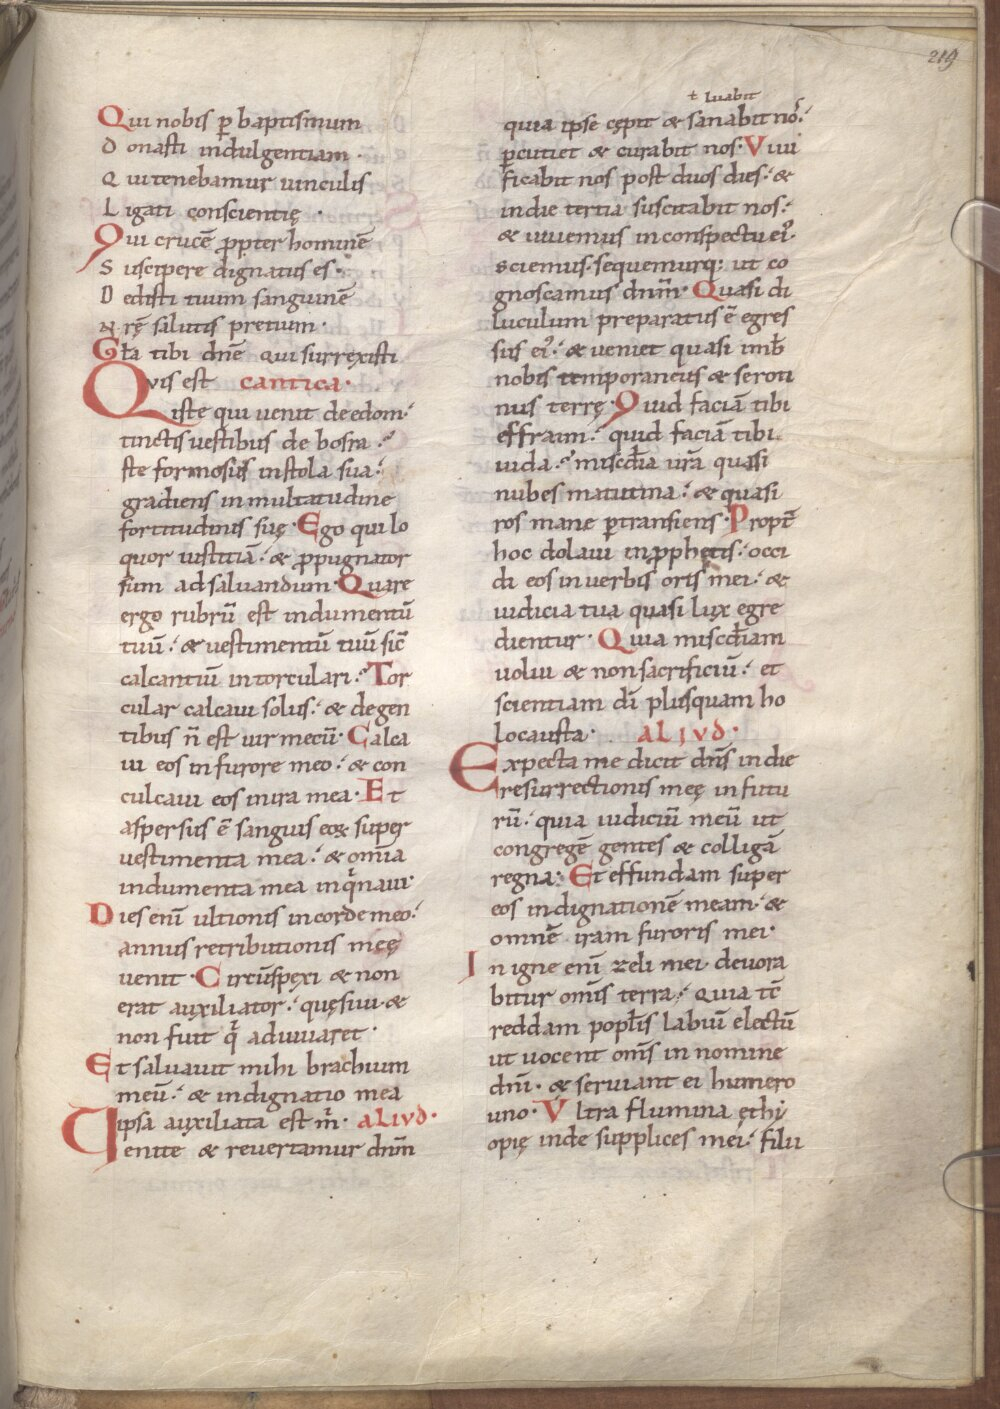 219
Qui nobis ꝑ baptismum
Donasti indulgentiam ·
Qui tenebamur uinculis
Ligati conscientię ·
Qui crucē ꝓpter hominē
Suscipere dignatus es ·
Dedisti tuum sanguinē
Nrę̄ salutis pretium ·
Gła tibi dnē qui surrexisti
Quis est cantica ·
iste qui uenit de edom ·
tinctis uestibus de bosra
ste formosus in stola sua
gradiens in multitudine
fortitudinis suę · Ego qui lo
quor iustitiā & ꝓpugnator
sum ad saluandum · Quare
ergo rubrū est indumentū
tuū & uestimentū tuū sic̄
calcantiū in torculari Tor
cular calcaui solus & de gen
tibus n̄ est uir mecū · Calca
ui eos in furore meo & con
culcaui eos in ira mea · Et
aspersus ē sanguis eoꝝ super
uestimenta mea & omīa
indumenta mea inq̄naui ·
Dies enī ultionis in corde meo
annus retributionis meę
uenit · Circūspexi & non
erat auxiliator quęsiui · &
non fuit q̄ adiuuaret ·
Et saluauit mihi brachium
meū & indignatio mea
ipsa auxiliata est m̄ · ALIVD ·
Venite & reuertamur dnm̄
ł luabit
quia ipse cępit & sanabit nos
ꝑcutiet & curabit nos · Viui
ficabit nos post duos dies &
in die tertia suscitabit nos
& uiuemus in conspectu ei᾿ ·
Sciemus · sequemurq; ut co
gnoscamus dnm̄ · Quasi di
luculum preparatus ē egres
sus ei᾿ & ueniet quasi imb̄
nobis temporaneus & seroti
nus terrę Quid faciā tibi
effraim quid faciā tibi
iuda miscd̄ia urā quasi
nubes matutina & quasi
ros mane ꝑtransiens · Propt̄
hoc dolaui in ꝓphetis occi
di eos in uerbis oris mei &
iudicia tua quasi lux egre
dientur · Quia miscd̄iam
uolui & non sacrificiū et
scientiam dī plusquam ho
locausta · ALIVD ·
Expecta me dicit dn̄s in die
resurrectionis meę in futu
rū quia iudiciū meū ut
congregē gentes & colligā
regna Et effundam super
eos indignationē meam · &
omnē iram furoris mei ·
In igne enī zeli mei deuora
bitur om̄is terra Quia tc̄
reddam popłis labiū electū
ut uocent om̄s in nomine
dnī · & seruiant ei humero
uno · Vltra flumina ęthy
opię inde supplices mei filii